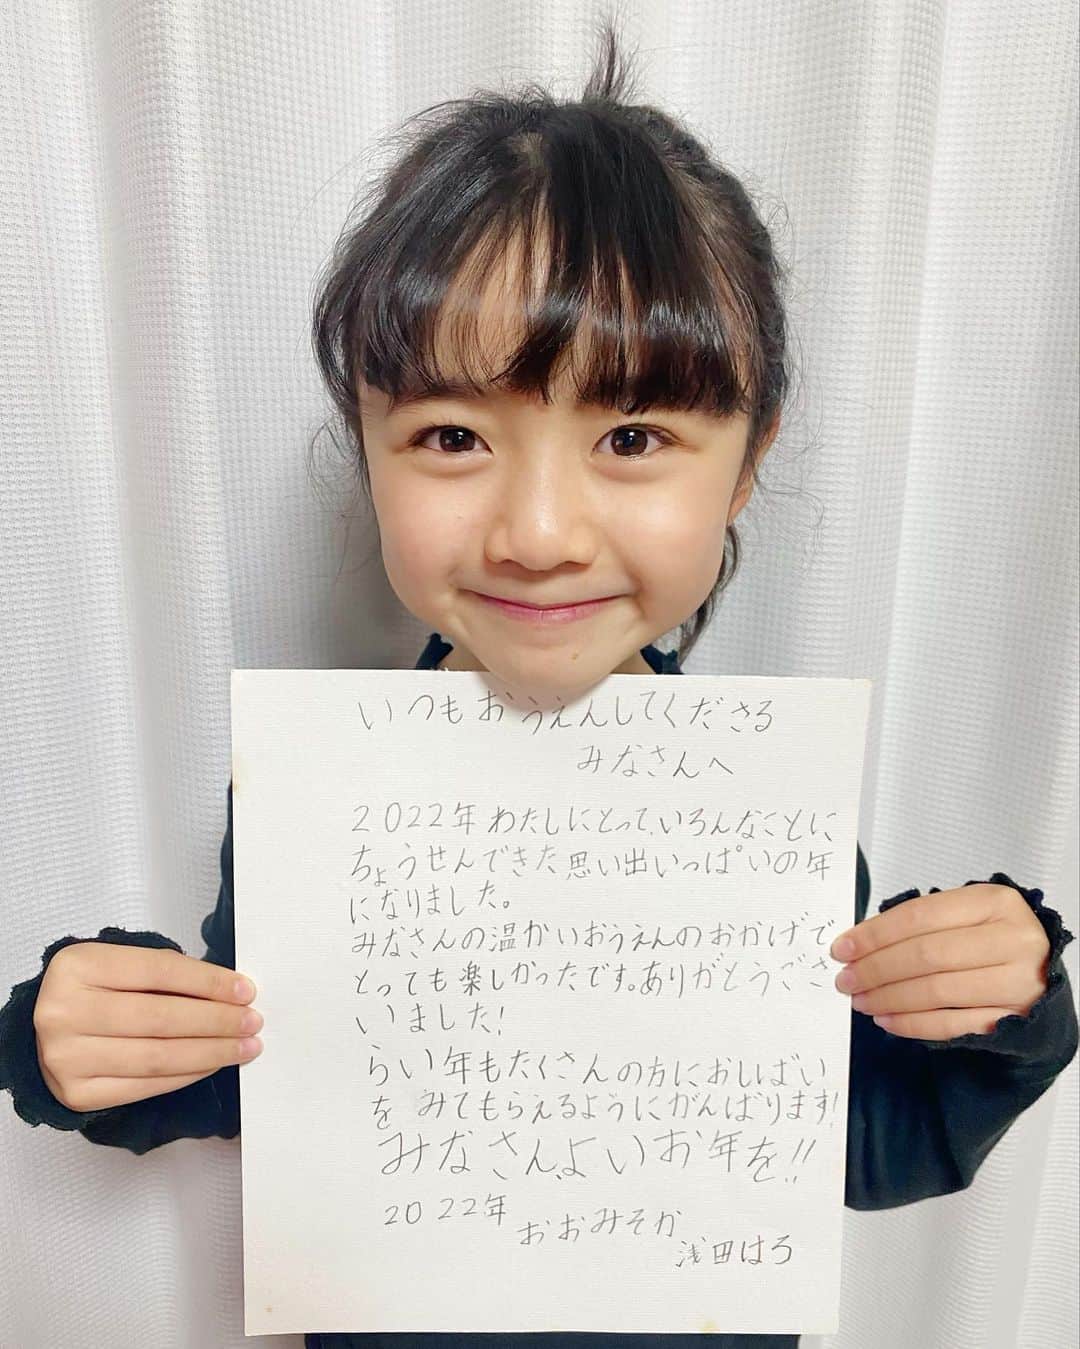 いつもおうえんしてくださる
みなさんへ
2022年わたしにとって、いろんなことに
ちょうせんできた思い出いっぱいの年
になりました。
みなさんの温かいおうえんのおかげで
とっても楽しかったです。ありがとうござ
いました!
らい年もたくさんの方におしばい
を みてもらえるようにがんばります!
みなさん、よいお年を!!
2022年
おおみそか
浅田はろ